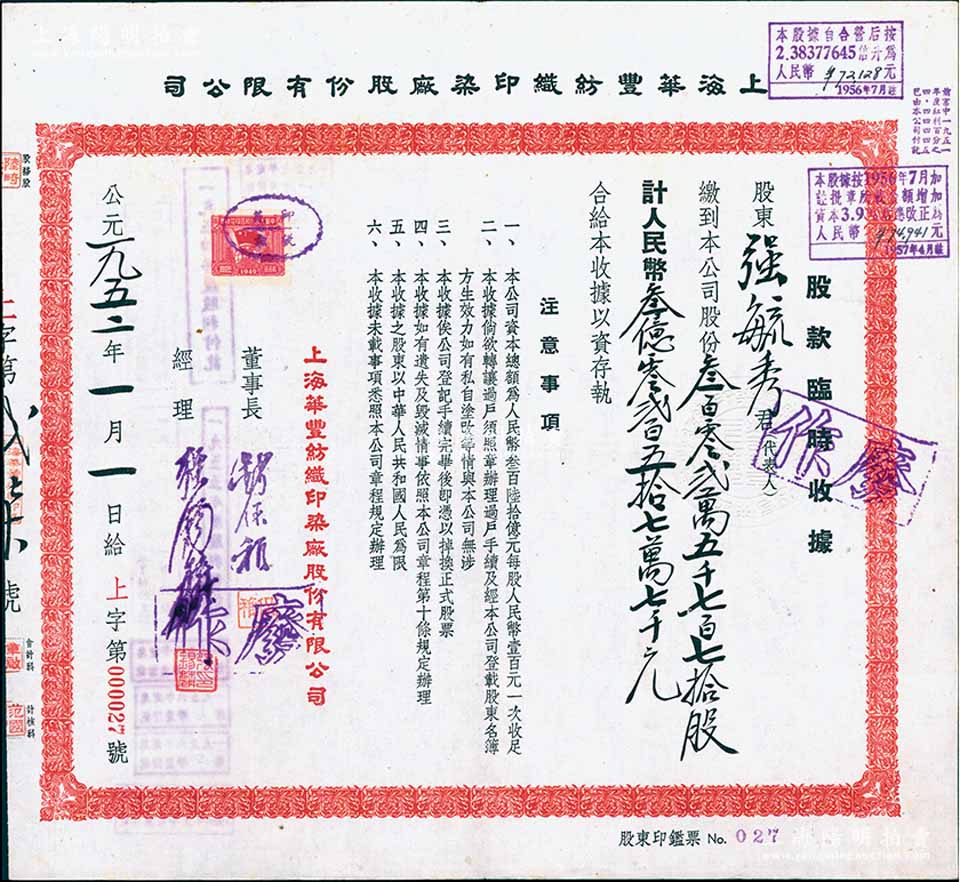 上海華豐紡織印染廠股份有限公司
本股據自合營后按
2.38377645倍升爲
人民幣 ¥72,128元
1956年7月註
前富中一九五一
年度紅利百分之
四·四四四五
已由本公司付訖
本股據按1956年7月加
註批章所載金額增加
資本3.9
應改正爲
人民幣 ¥74,941元
1957年4月註
股款臨時收據
股東 強毓秀 君(代表人)
繳到本公司股份叁百零貳萬五千七百七拾股
計人民幣叁億零貳百五拾七萬七千元
合給本收據以資存執
注意事項
一、本公司資本總額爲人民幣叁百陸拾億元每股人民幣壹百元一次收足
二、本收據倘欲轉讓過戶須照章辦理過戶手續及經本公司登載股東名簿
方生效力如有私自塗改等情與本公司無涉
三、本收據俟公司登記手續完畢後即憑以掉換正式股票
四、本收據如有遺失及毀滅情事依照本公司章程第十條規定辦理
五、本收據之股東以中華人民共和國人民爲限
六、本收據未載事項悉照本公司章程規定辦理
上海華豐紡織印染廠股份有限公司
董事長
經理
廢
作廢
1949
公元一九五二年一月一日給
上字第000027號
字第
號
股務股
會計科
計核科
股東印鑑票 No. 027
上海陽明拍賣